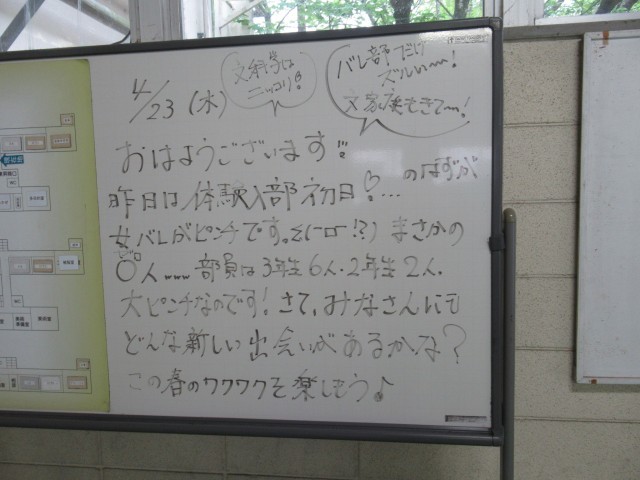 4/23(水)
文科学は
ニッコリ!
バレ部だけ
ズルい〜!
文家庭もきて〜!
おはようございます!!
昨日は体験入部初日♡…のはずが
女バレがピンチです。Σ(ーロー!?)まさかの
ゼロ
〇人www部員は3年生6人・2年生2人。
大ピンチなのです!さて、みなさんにも
どんな新しい出会いがあるかな?
この春のワクワクを楽しもう♪